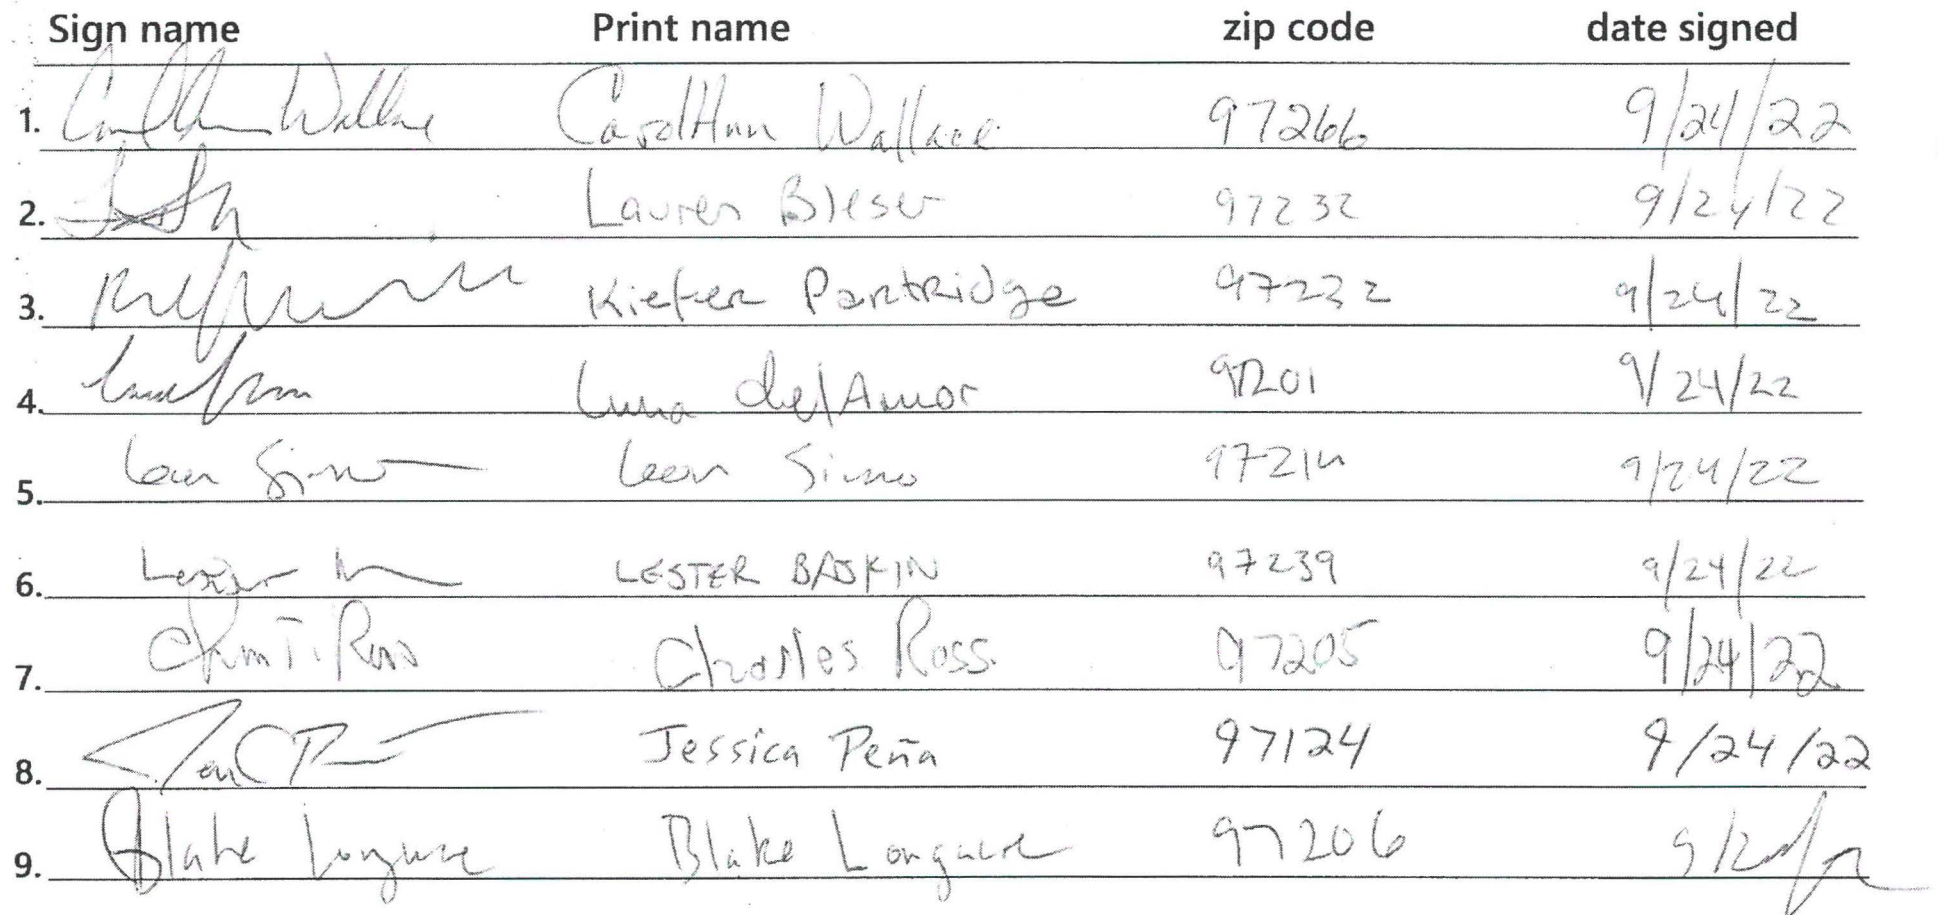 Sign name Print name zip code date signed
1. CarolAnn Wallace CarolAnn Wallace 97266 9/24/22
2. Lauren Bleser 97232 9/24/22
3. Kiefer Partridge 97232 9/24/22
4. Luna del Amor 97201 9/24/22
5. Leon Simo Leon Simo 97214 9/24/22
6. Lester LESTER BASKIN 97239 9/24/22
7. Ross Charles Ross. 97205 9/24/22
8. Jessica Peña 97124 9/24/22
9. Blake Blake 97206